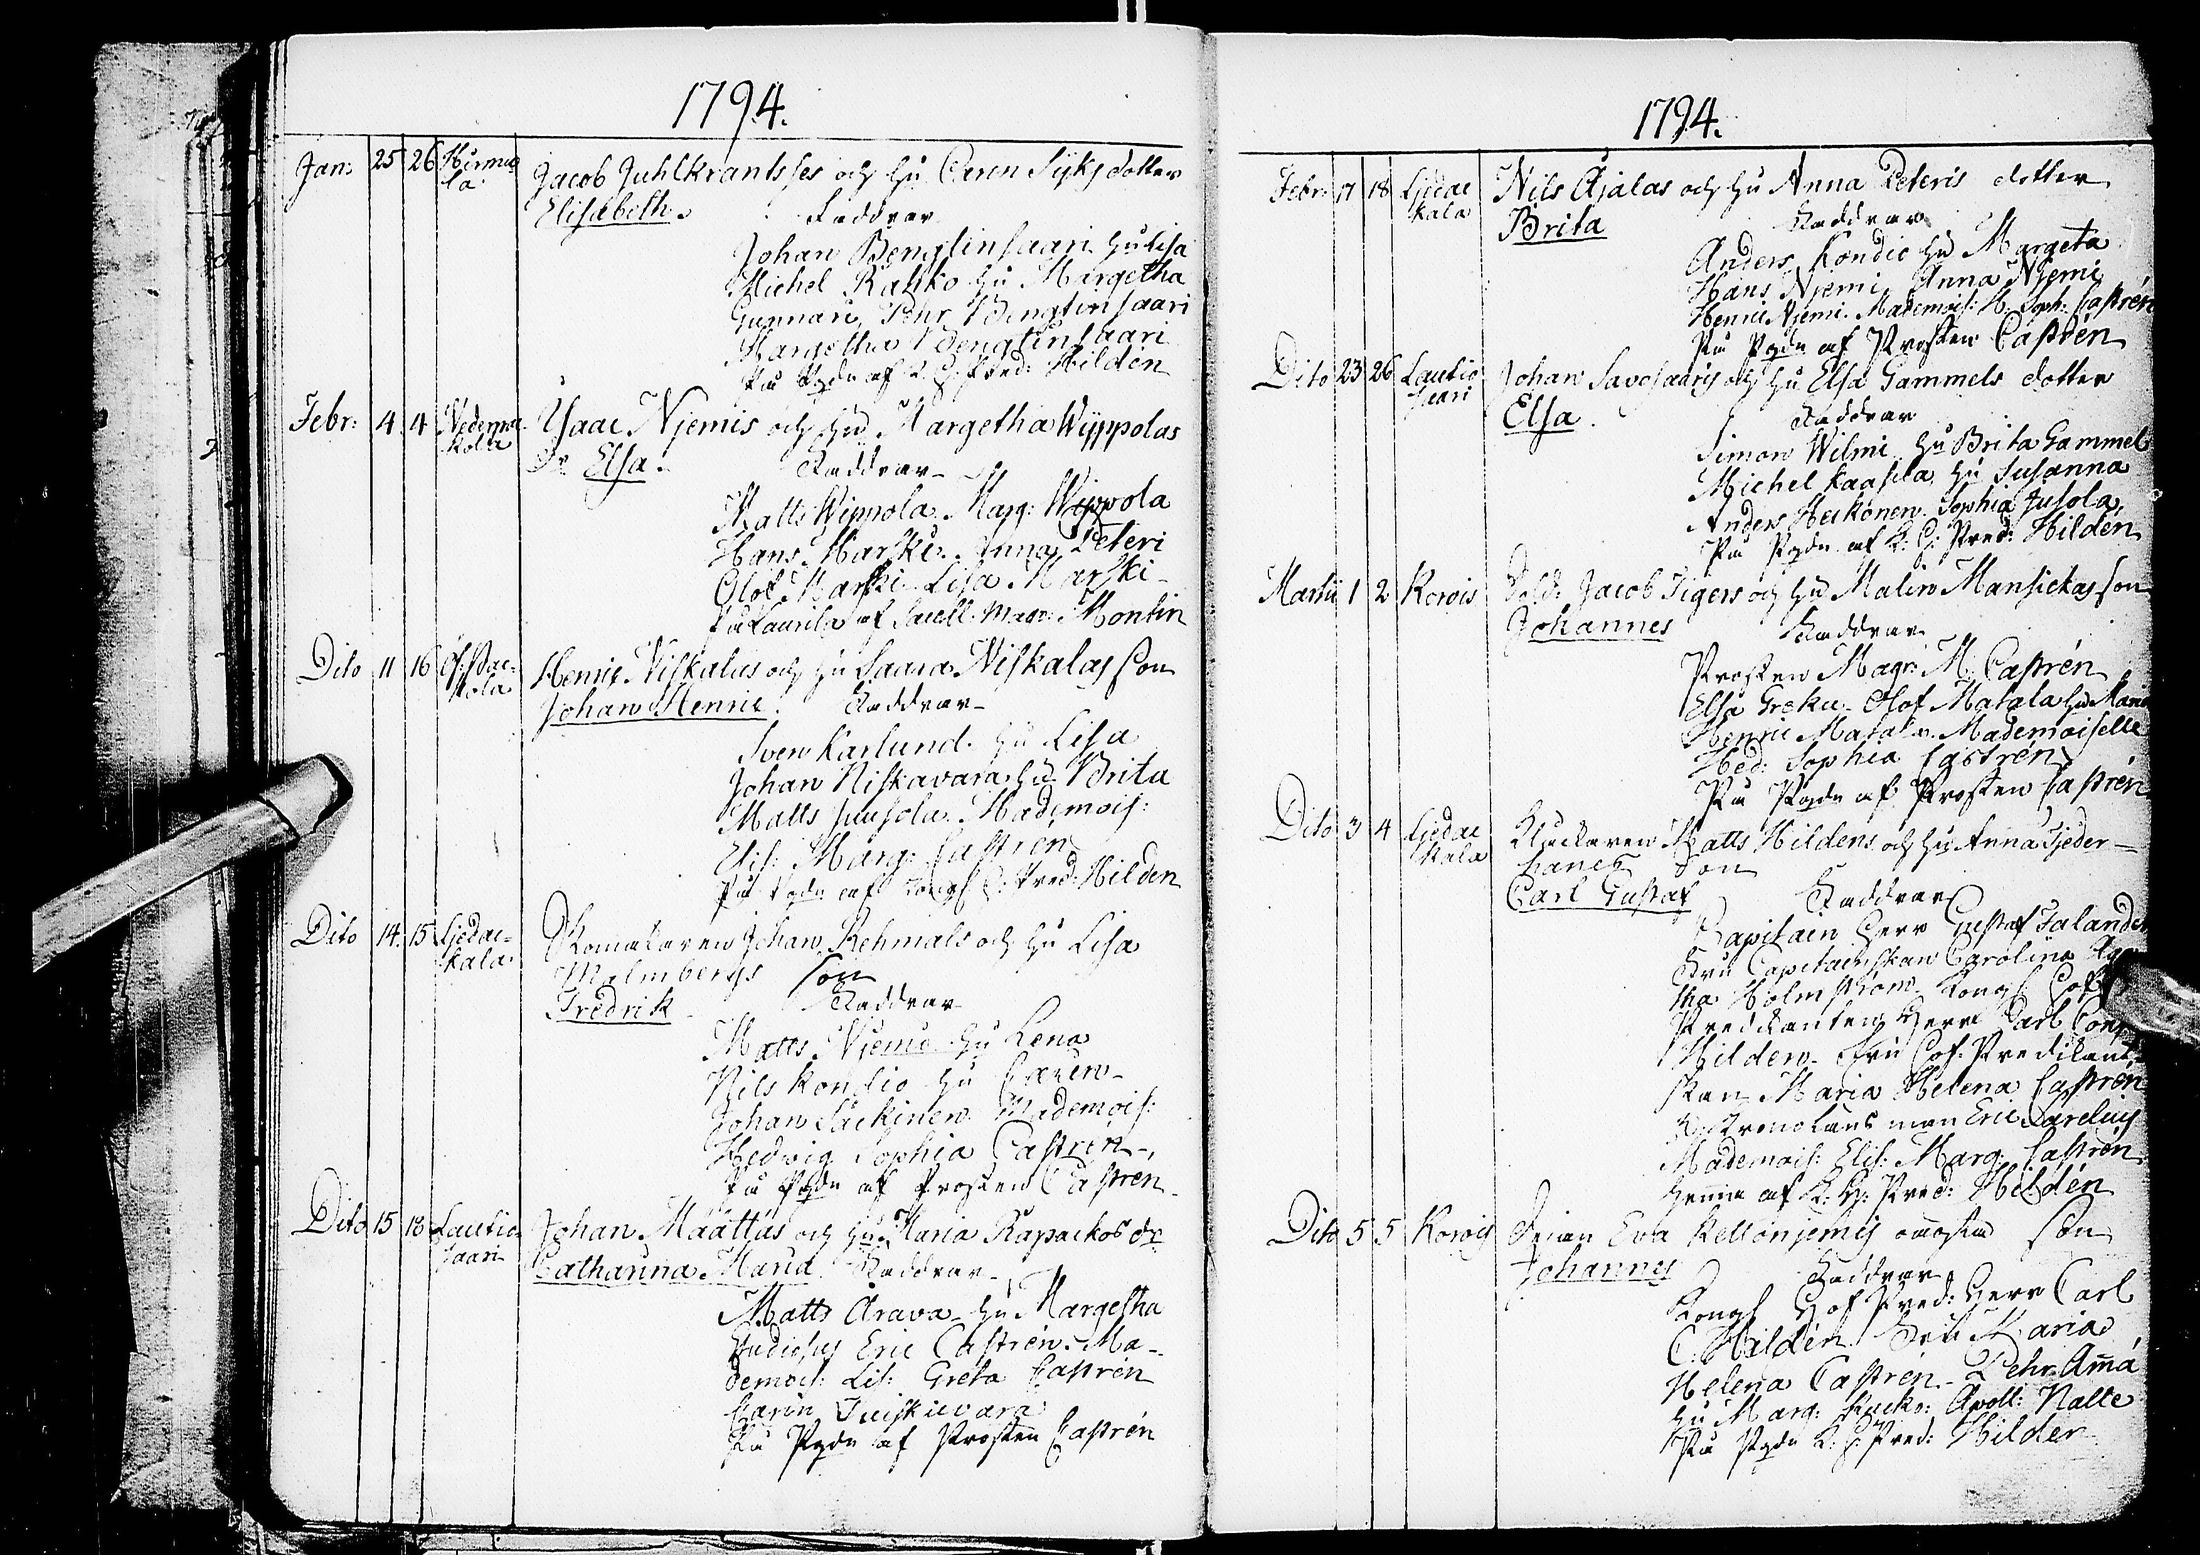 1794.
Jan: 25 26 Hirmu
la
Jacob Juhlkrantsses och hu Caren Sÿksdotter
Elisabeth. Faddrar
Johan Bengtinsaari hu Lisa
Michel Rahko hu Margetha
Gunnari, Pehr Bengtinsaari
Margetha Bengtinsaari
På Pgdn af K. H. Pred: Hildén
Febr: 4 4 kola
Isaac Njemis och hu Margetha Wÿppolas
Dr Elsa. Faddrar
Matts Wippola. Marg: Wippola
Hans Marski. Anna Peteri
Olof Marski Lisa Marski
på Laurila af Sacell. Mag: Montin
Dito 11 16
kola
Henric Niskalas och hu Saara Niskalas son
Johan Henric. Faddrar
Sven Karlund. hu Lisa
Johan Niskavara hu Brita
Matts Juusola. Mademois:
Elis: Marg: Castrén
På Pgdn af Kongl H: Pred: Hilden
Dito 14 15 Ljedac=
kala
Johan Rehmals och hu Lisa
Malmbergs son
Fredrik Faddrar
Matts Njemi hu Lena
Nils Kondio hu Caren
Johan Säckinen Mademois:
Hedwig Sophia Castren
På Pgdn af Prosten Castren
Dito 15 18 Lautio
saari
Johan Määttäs och hu Maria Rapackos dr
Catharina Maria. Faddrar
Matts Arava hu Margetha
Studiosus Eric Castrén. Ma-
demois: Lis: Greta Castrén
Carin Juiskuvara
På Pgdn af Prosten Castrén
1794.
Febr: 17 18 Ljedac
kala
Nils Ajalas och hu Anna Peteris dotter
Brita Faddrar
Anders Kondio hu Margeta
Hans Njemi, Anna Njemi
Henric Njemi. Mademois: H. Soph: Castrén
På Pgdn af Prosten Castrén
Dito 23 26 Lautio
saari
Johan Savosaaris och hu Elsa Gammels dotter
Elsa. Faddrar
Simon Wilmi hu Brita Gammel
Michel Kaasila hu Susanna
Anders Heikonen. Sophia Jusola,
På Pgdn af K: H: Pred: Hildén
Martii 1 2 Korvis
Sold: Jacob Tigers och hu Malin Mansickas son
Johannes Faddrar
Prosten Magr: M. Castrén
Elsa Greku. Olof Matala hu
Henric Matala. Mademoiselle
Hed: Sophia Castrén
På Pgdn af Prosten Castrén
Dito 3 4 Ljedac
kala
Klockaren Matts Hildens och hu Anna Fjeder-
hanes son
Carl Gustaf Faddrar
Capitain Herr Gustaf Jalander
Fru Capitainskan Carolina Aga
tha Holmstrom. Kongl Hof
Predikanten Herr Carl Conr
Hilden. Fru Hof. Predikant
skan Maria Helena Castrén
Kronolänsman Eric Careluis
Mademois: Elis: Marg: Castrén
Hemma af K: H: Pred: Hildén
Dito 5 5 Korvis
Pigan Eva Kellonjemis oächta son
Johannes Faddrar
Kongl Hof Pred: Herr Carl
C. Hildén. Fru Maria
Helena Castrén. Pehr Ammä
hu Marg: Apoll: Nalle
På Pgdn K: H: Pred: Hilden